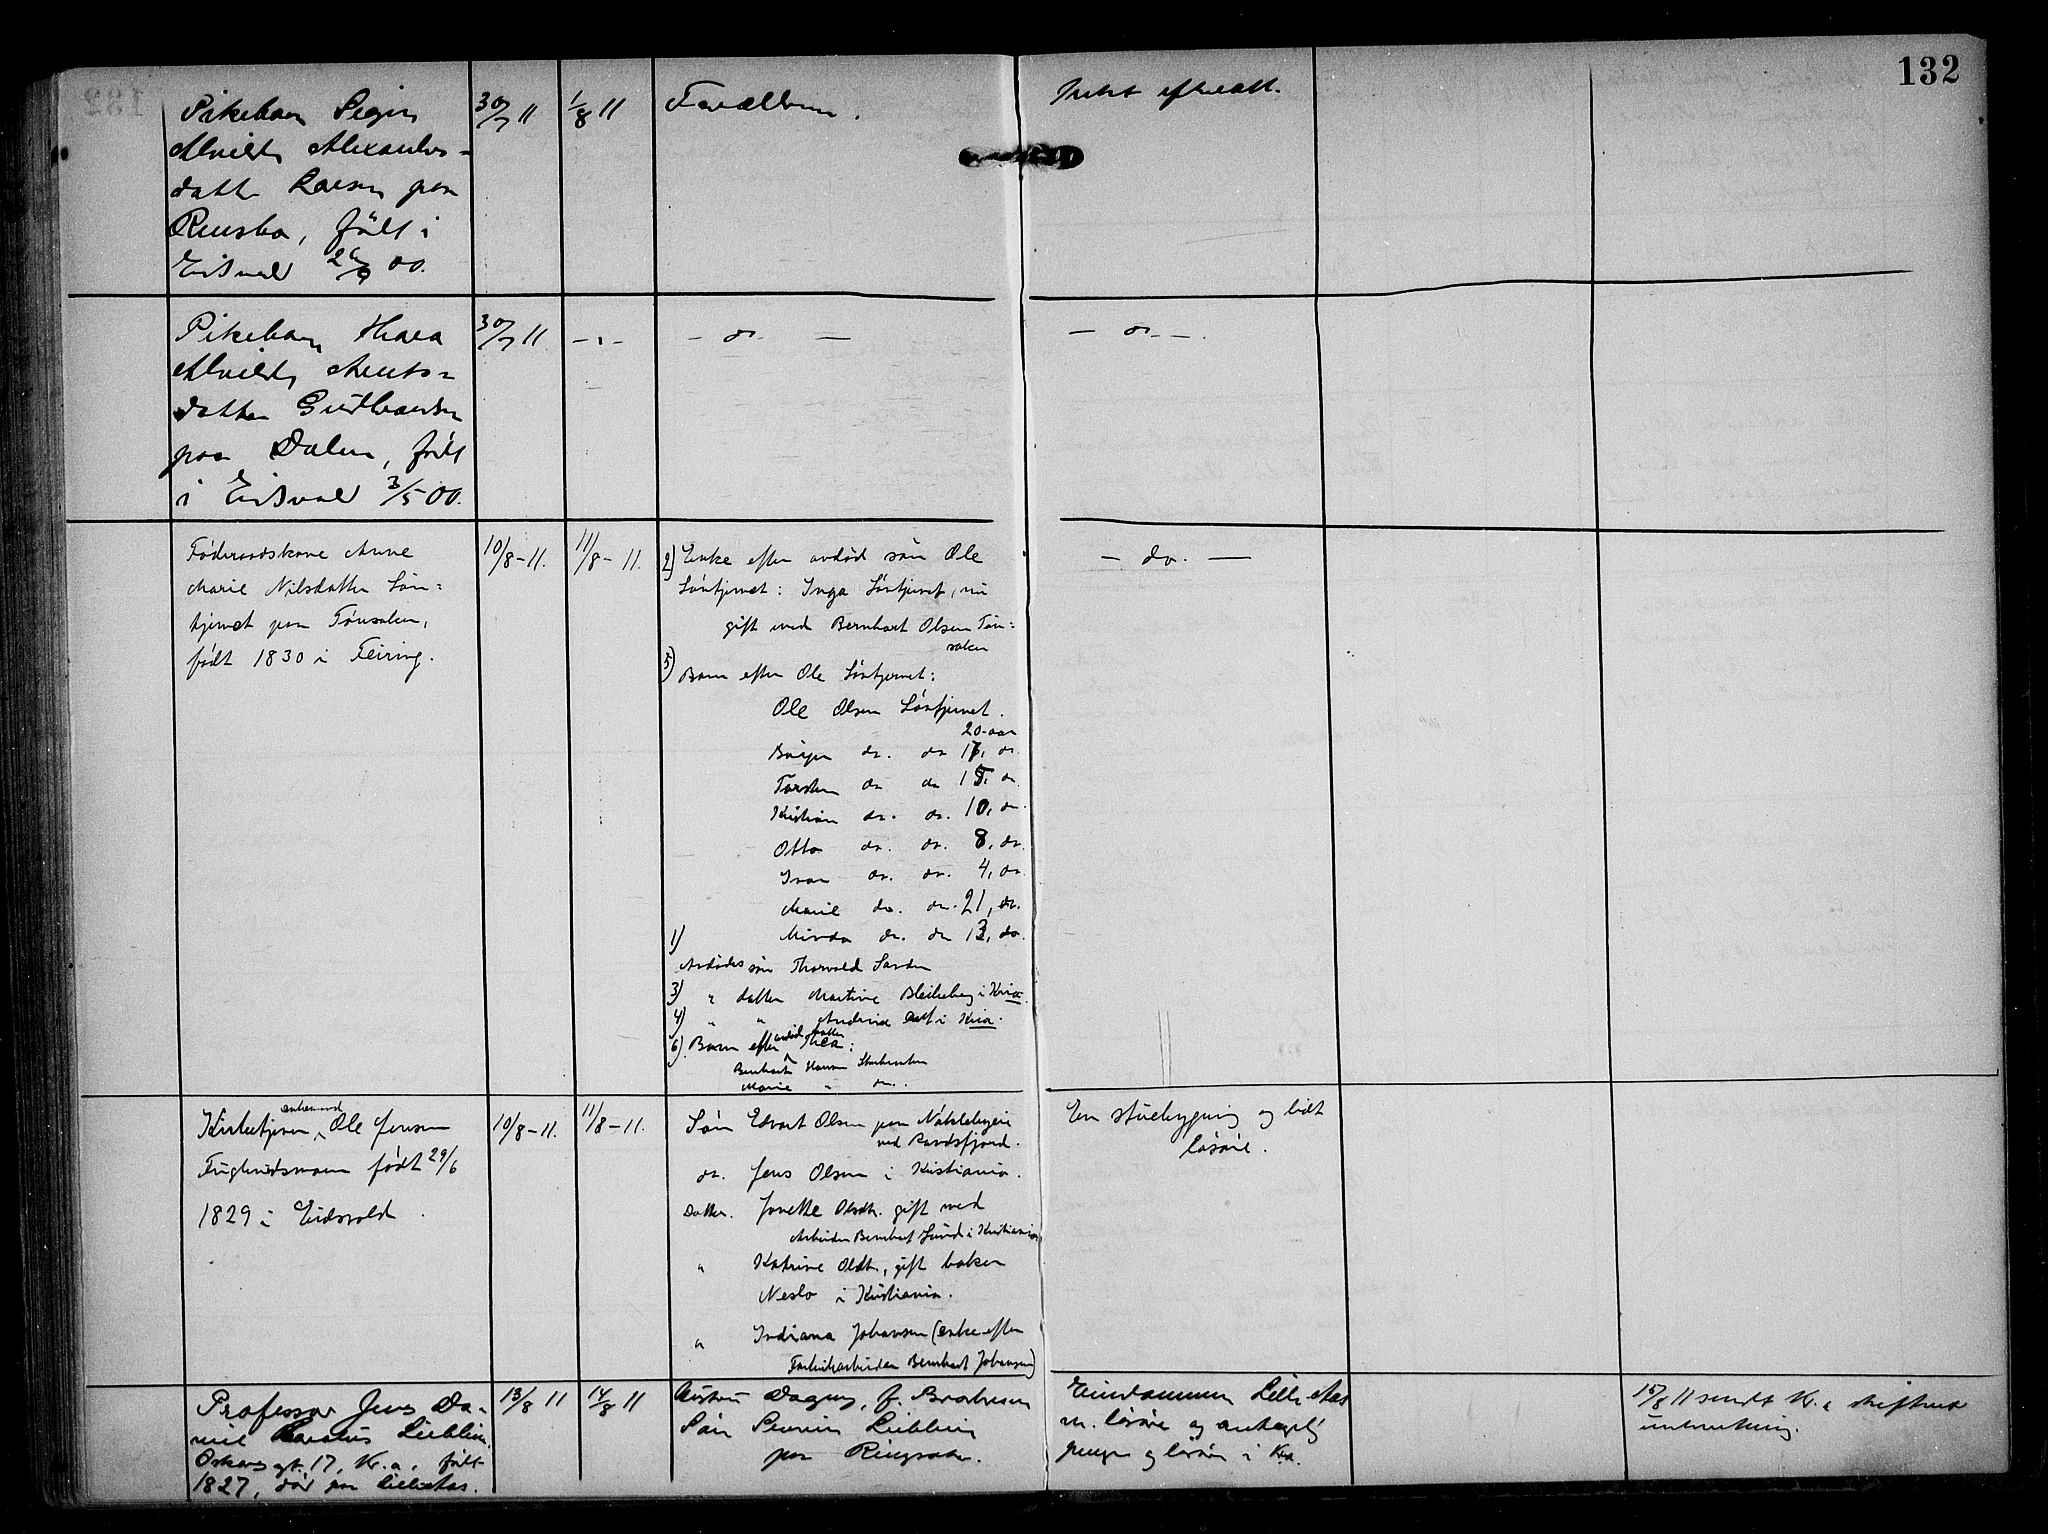 132
Pikebarn
Alvilda Alexanders-
datter Larsen paa
født i
Eidsvold 26/9 00.
30/7 11
1/8 11
Forældrene.
Intet efterlatt.
Pikebarn Thora
Alvilda Arnts-
datter Gulbransen
paa Dalen, født
i Eidsvold 3/5 00.
30/7 11
- " -
- do. -
- do. -
Føderaadskone Anne
Marie Nilsdatter Løn-
tjernet paa Tønsaken,
født 1830 i Feiring.
10/8 - 11.
11/8 - 11.
2) Enke efter avdød søn Ole
Løntjernet: Inga Løntjernet, nu
gift med Bernhart Olsen Tøn-
saken
5) Barn efter Ole Løntjernet:
Ole Olsen Løntjernet.
20 aar
Birger do. do. 17, do.
Torsten do. do. 15, do.
Kristian do. do. 10, do.
Otto do. do. 8, do.
Ivar do. do. 4, do.
Marie do. do. 21, do.
Minda do. do. 13, do.
1) Avdødes søn Thorvald
3) " datter Martine Bleikeberg i Kria.
4) " " Andrine i Kria.
6) Barn efter avdød datter Thea:
Bernhart Hansen
Marie " do.
- do. -
Kirketjener enkemand Ole Jensen
født 29/6
1829 i Eidsvold.
10/8 - 11.
11/8 - 11.
Søn Edvart Olsen paa
ved Randsfjord.
do. Jens Olsen i Kristiania.
Datter. Jonette Olsdtr. gift med
Arbeider Bernhart Lund i Kristiania
" Katrine Olsdt., gift baker
Neslo i Kristiania.
" Indiana Johansen (enke efter
Fabrikarbeider Bernhart Johansen)
En stuebygning og lidt
løsøre.
Professor Jens Da-
niel Carolus Lieblein,
Oskars gt. 17, Kr.a. født
1827, død paa Lille Aas.
13/8 11
14/8 11
Hustru Dagny, f.
Søn Severin Lieblein
paa Ringsaker.
Eiendommen Lille Aas
m. løsøre og antagelig
penger og løsøre i Kra.
15/8 11 sendt Kr.a skifteret
underretning.